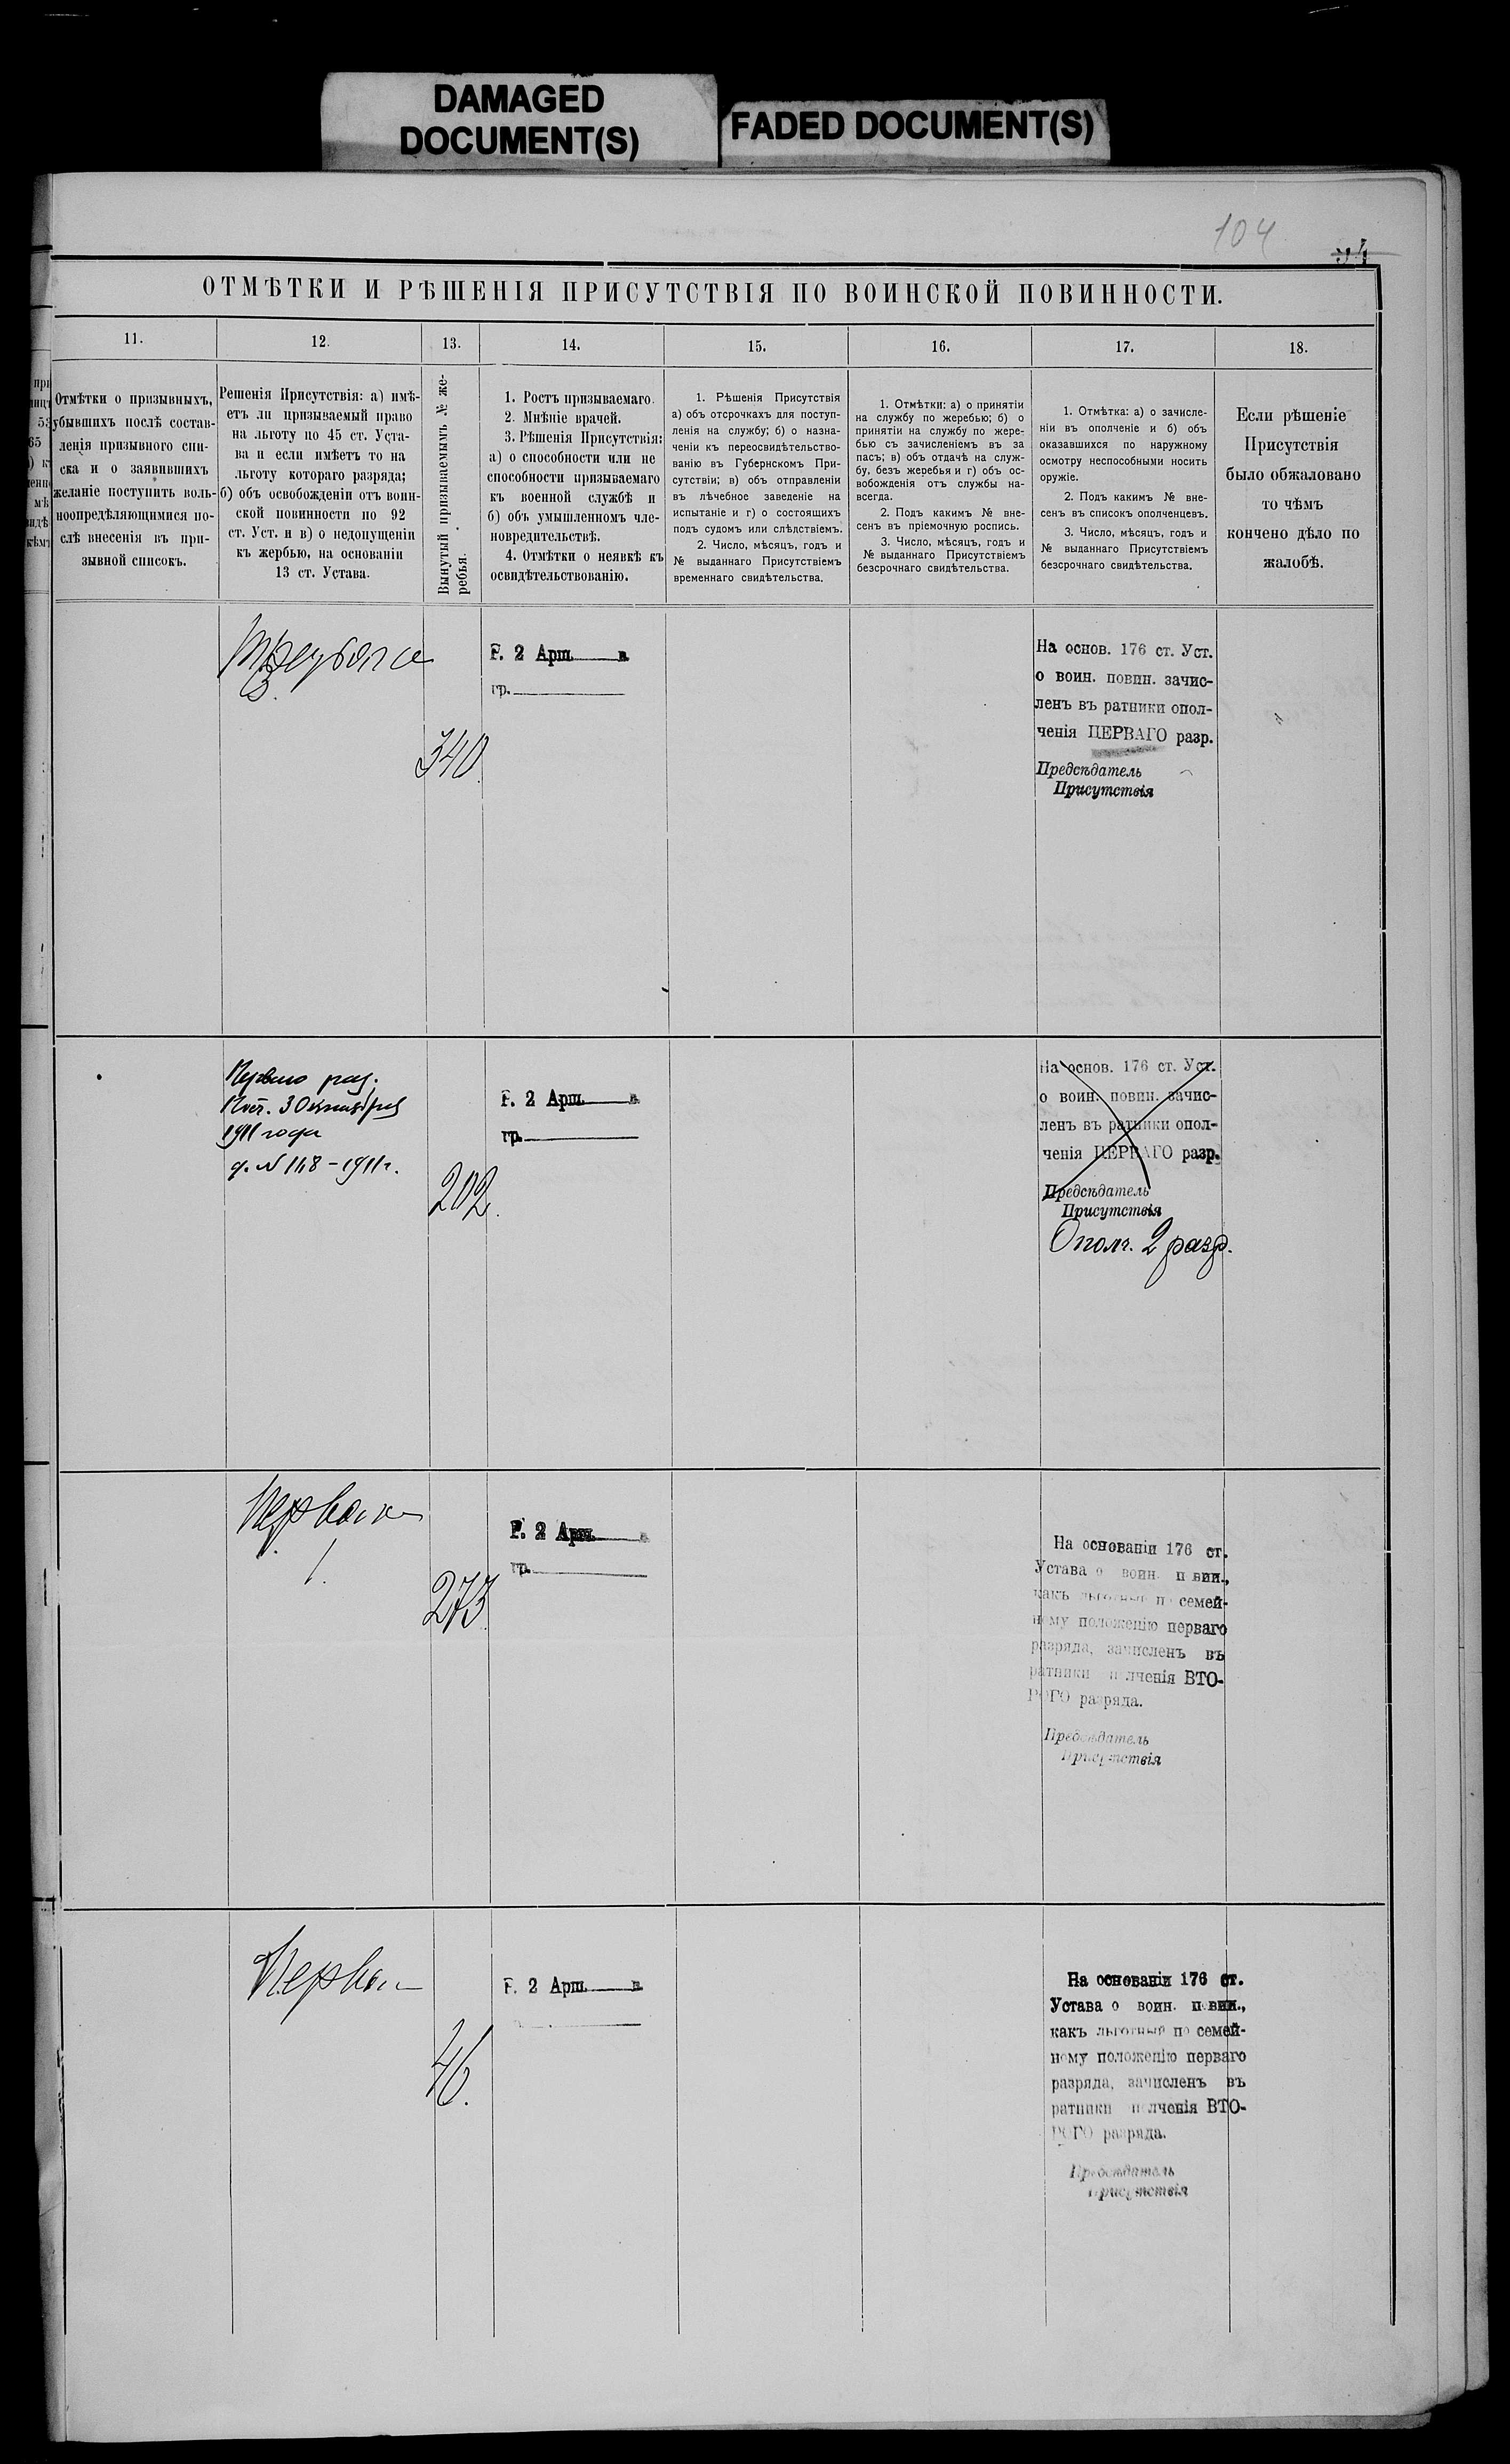 DAMAGED
DOCUMENT(S)
FADED DOCUMENT(S)
104
ОТМѢТКИ И РѢШЕНІЯ ПРИСУТСТВІЯ ПО ВОИНСКОЙ ПОВИННОСТИ.
11.
12.
13.
14.
15.
16.
17.
18.
Отмѣтки о призывныхъ,
убывшихъ послѣ состав-
ленія призывного спи-
ска и о заявившихъ
желаніе поступить воль-
ноопредѣляющимися по-
слѣ внесенія въ при-
зывной списокъ.
Решенія Присутствія: а) имѣ-
етъ ли призываемый право
на льготу по 45 ст. Уста-
ва и если имѣетъ то на
льготу котораго разряда;
б) объ освобожденіи отъ воин-
ской повинности по 92
ст. Уст. и в) о недопущеніи
къ жербью, на основаніи
13 ст. Устава.
Вынутый призываемымъ № же-
ребья.
1. Ростъ призываемаго.
2. Мнѣніе врачей.
3. Рѣшенія Присутствія:
а) о способности или не
способности призываемаго
къ военной службѣ и
б) объ умышленномъ чле-
новредительствѣ.
4. Отмѣтки о неявкѣ къ
освидѣтельствованію.
1. Рѣшенія Присутствія
а) объ отсрочкахъ для поступ-
ленія на службу; б) о назна-
ченіи къ переосвидѣтельство-
ванію въ Губернскомъ При-
сутствіи; в) объ отправленіи
въ лѣчебное заведеніе на
испытаніе и г) о состоящихъ
подъ судомъ или слѣдствіемъ.
2. Число, мѣсяцъ, годъ и
№ выданнаго Присутствіемъ
временнаго свидѣтельства.
1. Отмѣтки: а) о принятіи
на службу по жеребью; б) о
принятіи на службу по жере-
бью съ зачисленіемъ въ за
пасъ; в) объ отдачѣ на служ-
бу, безъ жеребья и г) объ ос-
вобожденія отъ службы на-
всегда.
2. Подъ какимъ № вне-
сенъ въ пріемочную роспись.
3. Число, мѣсяцъ, годъ и
№ выданнаго Присутствіемъ
безсрочнаго свидѣтельства.
1. Отмѣтка: а) о зачисле-
ніи въ ополченіе и б) объ
оказавшихся по наружному
осмотру неспособными носить
оружіе.
2. Подъ какимъ № вне-
сенъ въ списокъ ополченцевъ.
3. Число, мѣсяцъ, годъ и
№ выданнаго Присутствіемъ
безсрочнаго свидѣтельства.
Если рѣшеніе
Присутствія
было обжаловано
то чѣмъ
кончено дѣло по
жалобѣ.
3.
340
Р. 2 Арш. в.
гр.
На основ. 176 ст. Уст.
о воин. повин. зачис-
ленъ въ ратники опол-
ченія ПЕРВАГО разр.
Предсѣдатель
Присутствія
Перваго раз.
Пост. 3 Октября
1911 года
д. N 118 - 1911 г.
202.
Р. 2 Арш. в.
гр.
На основ. 176 ст. Уст.
о воин. повин. зачис-
ленъ въ ратники опол-
ченія ПЕРВАГО разр.
Предсѣдатель
Присутствія
Ополч. 2 разр.
1.
273
Р. 2 Арш. в.
гр.
На основаніи 176 ст.
Устава о воин. повин.,
какъ льготный по семей-
ному положенію перваго
разряда, зачисленъ въ
ратники ополченія ВТО-
РОГО разряда.
Предсѣдатель
Присутствія
46.
Р. 2 Арш. в.
На основаніи 176 ст.
Устава о воин. повин.,
какъ льготный по семей-
ному положенію перваго
разряда, зачисленъ въ
ратники ополченія ВТО-
РОГО разряда.
Предсѣдатель
Присутствія